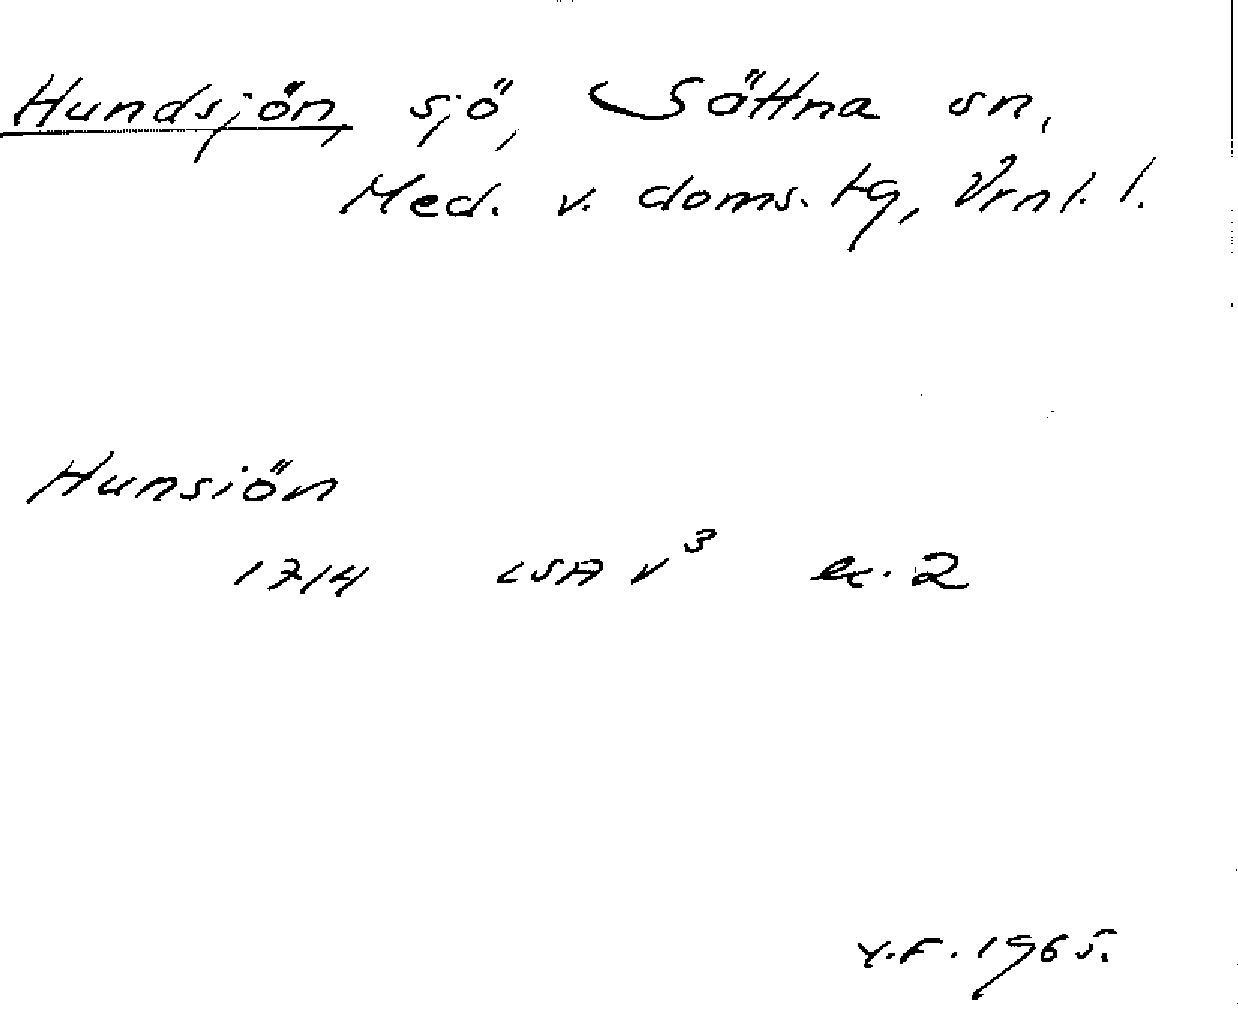 Hundsjön, sjö, Sättna sn,
Med. v. doms. tg, Vrnl. l.
Hunsiön
1714 LSA V³ ex. 2
Y.F. 1965.